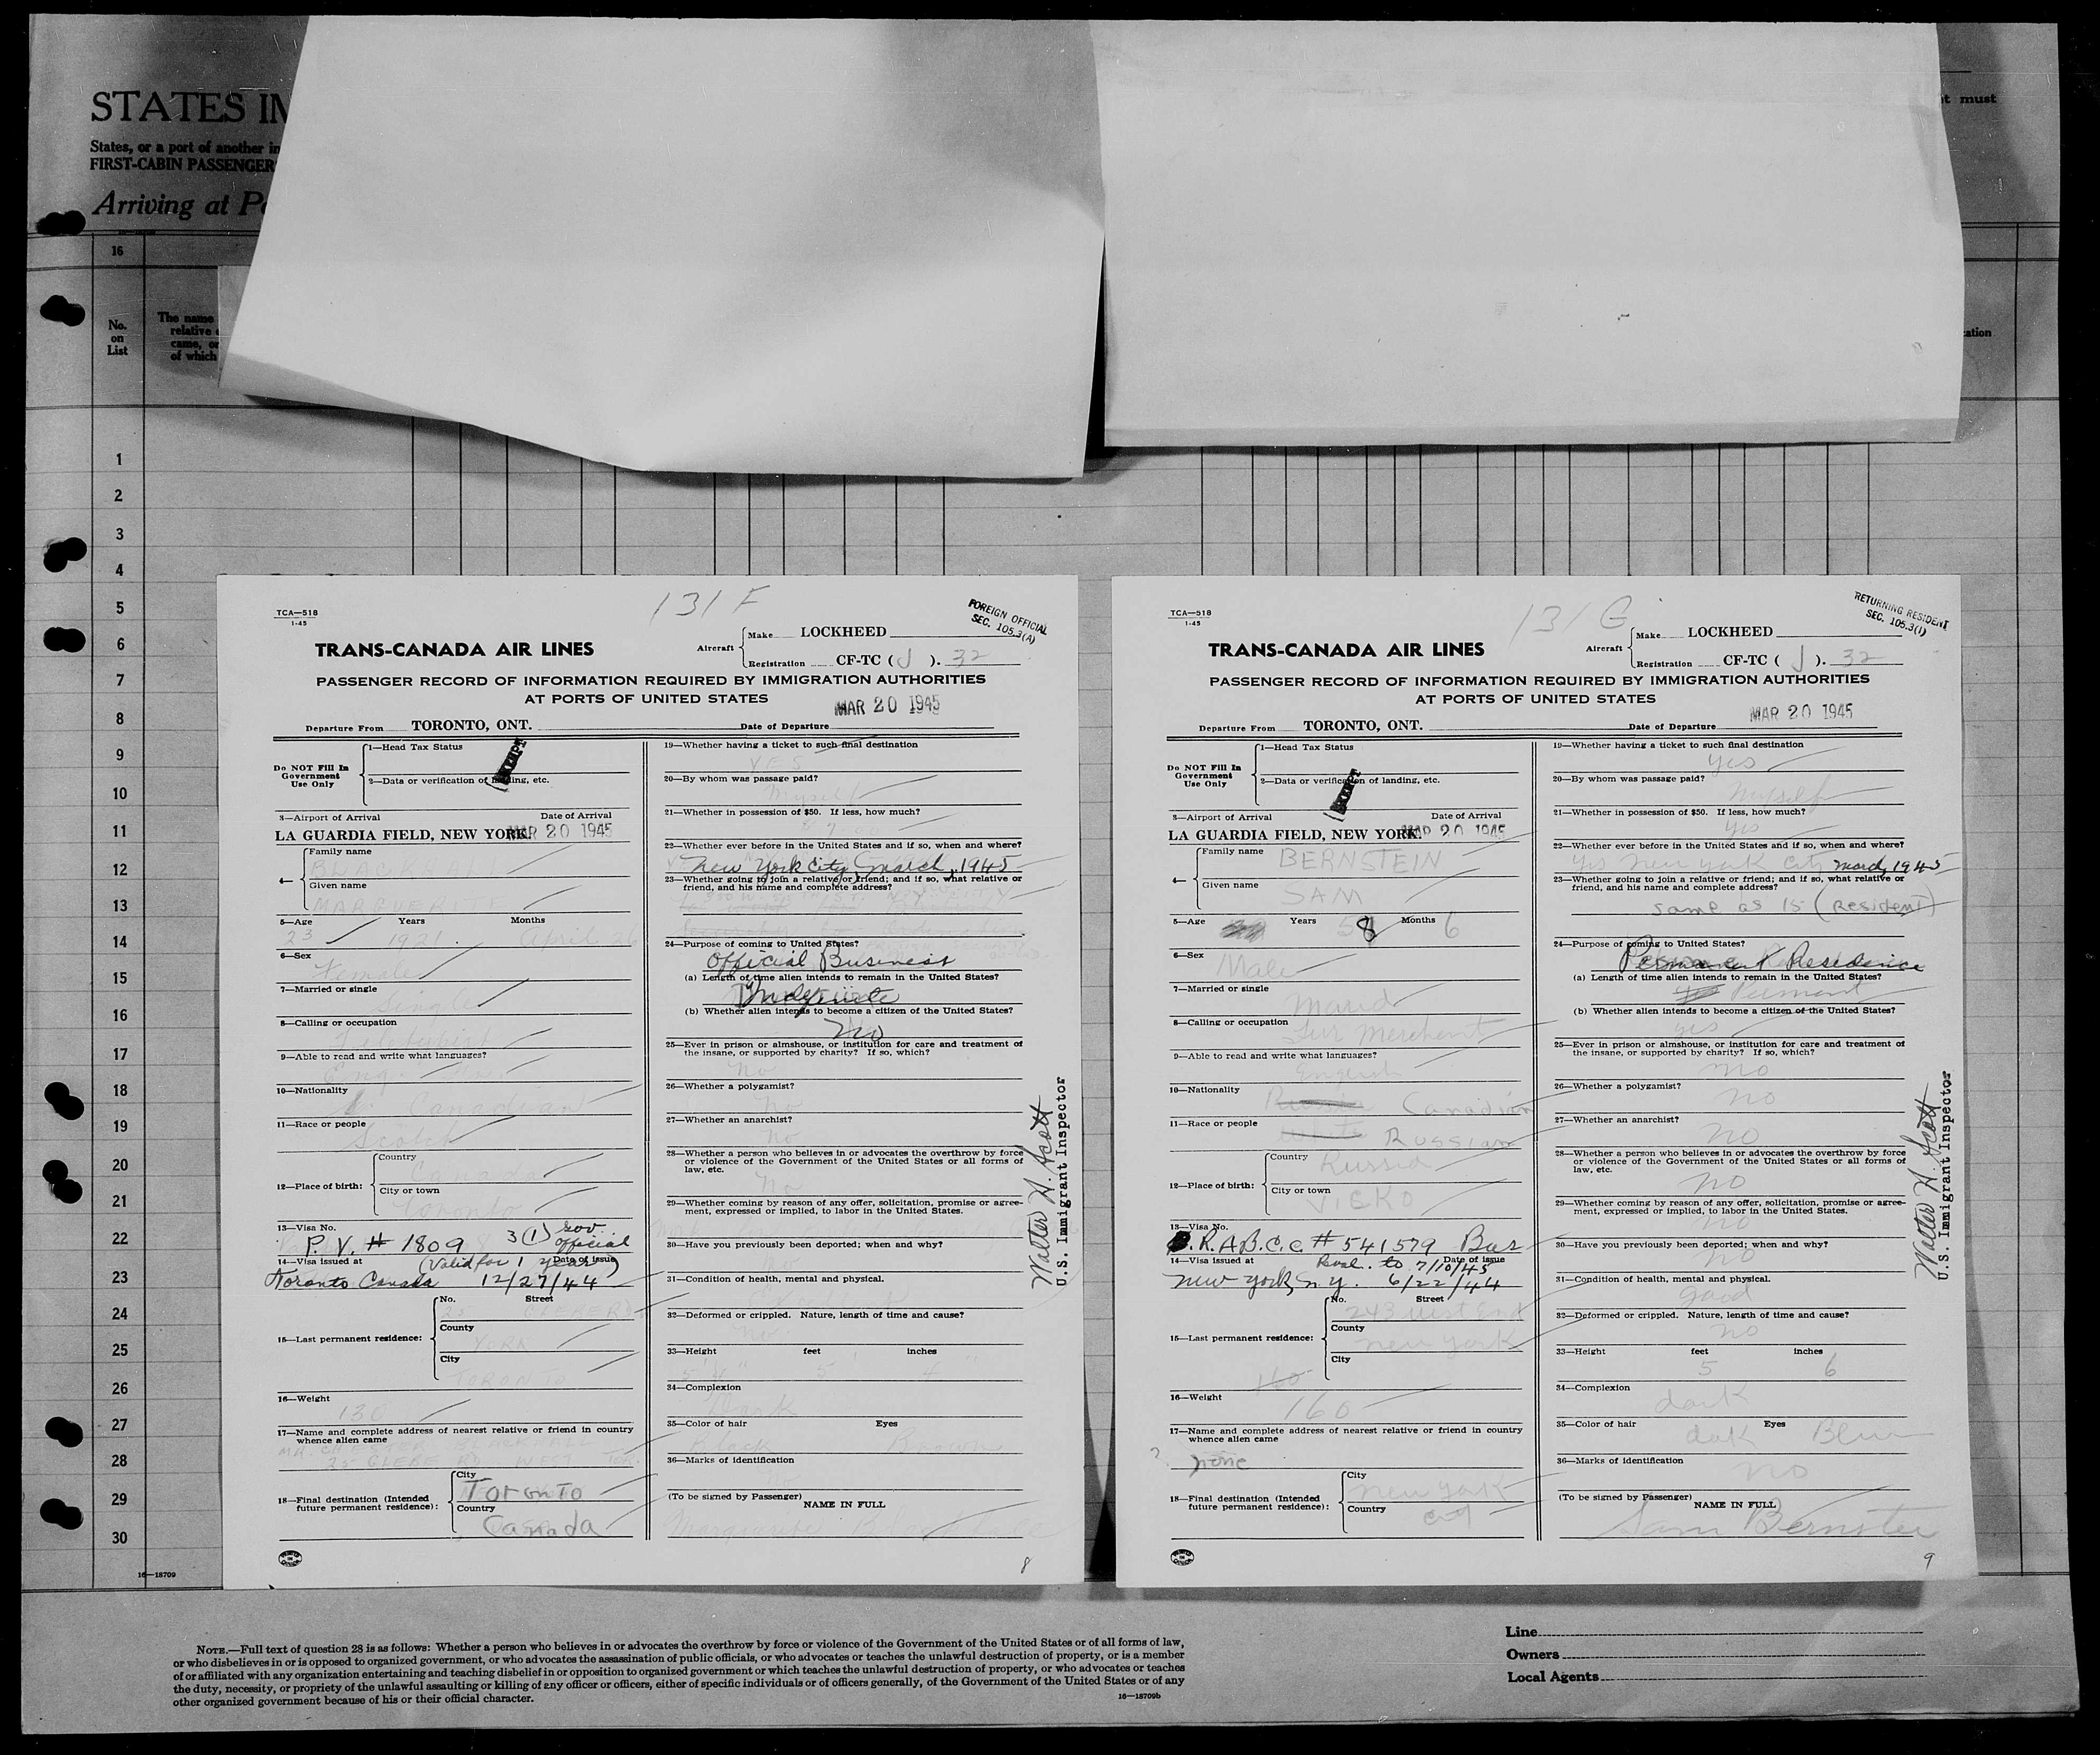 STATES IM
States, or a port of another in
FIRST-CABIN PASSENGER
Arriving at Po
t must
16
No.
on
List
The name
relative
came, or
of which
ation
1
2
3
4
5
6
7
8
9
10
11
12
13
14
15
16
17
18
19
20
21
22
23
24
25
26
27
28
29
30
16—18709
131 F
FOREIGN OFFICIAL
SEC. 105.3(A)
TCA—518
1-45
TRANS-CANADA AIR LINES
Aircraft
Make LOCKHEED
Registration CF-TC ( J ). 32
PASSENGER RECORD OF INFORMATION REQUIRED BY IMMIGRATION AUTHORITIES
AT PORTS OF UNITED STATES
MAR 20 1945
Departure From TORONTO, ONT. Date of Departure
Do NOT Fill In
Government
Use Only
1—Head Tax Status
2—Data or verification of landing, etc.
EXEMPT
3—Airport of Arrival Date of Arrival
LA GUARDIA FIELD, NEW YORK. MAR 20 1945
4—
Family name
Given name
5—Age Years Months
23 1921 April
6—Sex
Female
7—Married or single
Single
8—Calling or occupation
9—Able to read and write what languages?
10—Nationality
Canadian
11—Race or people
Scotch
12—Place of birth:
Country
Canada
City or town
Toronto
13—Visa No.
P. V. # 1809 3(1) Gov
official
14—Visa issued at (Valid for 1 year) Date of issue
Toronto Canada 12/27/44
15—Last permanent residence:
No. Street
County
YORK
City
TORONTO
16—Weight
130
17—Name and complete address of nearest relative or friend in country
whence alien came
18—Final destination (Intended
future permanent residence):
City
Toronto
Country
Canada
19—Whether having a ticket to such final destination
YES
20—By whom was passage paid?
Myself
21—Whether in possession of $50. If less, how much?
22—Whether ever before in the United States and if so, when and where?
New York City, March, 1945
23—Whether going to join a relative or friend; and if so, what relative or
friend, and his name and complete address?
24—Purpose of coming to United States?
Official Business
(a) Length of time alien intends to remain in the United States?
Indefinite
(b) Whether alien intends to become a citizen of the United States?
No
25—Ever in prison or almshouse, or institution for care and treatment of
the insane, or supported by charity? If so, which?
No
26—Whether a polygamist?
No
27—Whether an anarchist?
No
28—Whether a person who believes in or advocates the overthrow by force
or violence of the Government of the United States or all forms of
law, etc.
No
29—Whether coming by reason of any offer, solicitation, promise or agree-
ment, expressed or implied, to labor in the United States.
30—Have you previously been deported; when and why?
31—Condition of health, mental and physical.
32—Deformed or crippled. Nature, length of time and cause?
No
33—Height feet inches
34—Complexion
Dark
35—Color of hair Eyes
Black Brown
36—Marks of identification
(To be signed by Passenger)
NAME IN FULL
Walter H. Scott
U.S. Immigrant Inspector
8
131 G
RETURNING RESIDENT
SEC. 105.3(1)
TCA—518
1-45
TRANS-CANADA AIR LINES
Aircraft
Make LOCKHEED
Registration CF-TC ( J ). 32
PASSENGER RECORD OF INFORMATION REQUIRED BY IMMIGRATION AUTHORITIES
AT PORTS OF UNITED STATES
MAR 20 1945
Departure From TORONTO, ONT. Date of Departure
Do NOT Fill In
Government
Use Only
1—Head Tax Status
2—Data or verification of landing, etc.
EXEMPT
3—Airport of Arrival Date of Arrival
LA GUARDIA FIELD, NEW YORK. MAR 20 1945
4—
Family name
BERNSTEIN
Given name
SAM
5—Age Years 58 Months 6
6—Sex
Male
7—Married or single
Married
8—Calling or occupation
Fur Merchant
9—Able to read and write what languages?
English
10—Nationality
Canadian
11—Race or people
Russian
12—Place of birth:
Country
Russia
City or town
13—Visa No.
R.A.B.C.C. # 541579 Bus
14—Visa issued at Reval. to 7/10/45 Date of issue
New York, N.Y. 6/22/44
15—Last permanent residence:
No. Street
243 West End
County
New York
City
160
16—Weight
160
17—Name and complete address of nearest relative or friend in country
whence alien came
? none
18—Final destination (Intended
future permanent residence):
City
New York
Country
City
19—Whether having a ticket to such final destination
Yes
20—By whom was passage paid?
Myself
21—Whether in possession of $50. If less, how much?
Yes
22—Whether ever before in the United States and if so, when and where?
Yes New York City March, 1945
23—Whether going to join a relative or friend; and if so, what relative or
friend, and his name and complete address?
same as 15 (resident)
24—Purpose of coming to United States?
Permanent Residence
(a) Length of time alien intends to remain in the United States?
Permant
(b) Whether alien intends to become a citizen of the United States?
yes
25—Ever in prison or almshouse, or institution for care and treatment of
the insane, or supported by charity? If so, which?
no
26—Whether a polygamist?
no
27—Whether an anarchist?
no
28—Whether a person who believes in or advocates the overthrow by force
or violence of the Government of the United States or all forms of
law, etc.
no
29—Whether coming by reason of any offer, solicitation, promise or agree-
ment, expressed or implied, to labor in the United States.
no
30—Have you previously been deported; when and why?
no
31—Condition of health, mental and physical.
good
32—Deformed or crippled. Nature, length of time and cause?
no
33—Height feet inches
5 6
34—Complexion
dark
35—Color of hair Eyes
dark Blue
36—Marks of identification
no
(To be signed by Passenger)
NAME IN FULL
Sam Bernstein
Walter H. Scott
U.S. Immigrant Inspector
9
NOTE.—Full text of question 28 is as follows: Whether a person who believes in or advocates the overthrow by force or violence of the Government of the United States or of all forms of law,
or who disbelieves in or is opposed to organized government, or who advocates the assassination of public officials, or who advocates or teaches the unlawful destruction of property, or is a member
of or affiliated with any organization entertaining and teaching disbelief in or opposition to organized government or which teaches the unlawful destruction of property, or who advocates or teaches
the duty, necessity, or propriety of the unlawful assaulting or killing of any officer or officers, either of specific individuals or of officers generally, of the Government of the United States or of any
other organized government because of his or their official character.
16—18709b
Line
Owners
Local Agents